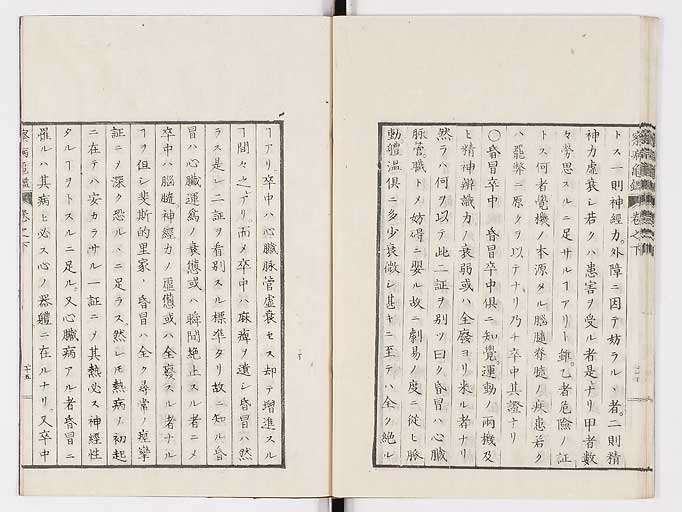 察病亀鑑 卷之下
トス一則神經力。外障ニ因テ妨ラルヽ者。二則精
神力虚衰シ若クハ患害ヲ受ル者是ナリ甲者數
々勞思スルニ足サルヿアリト雖乙者危險ノ証
トス何者覺機ノ本源タル腦髓脊髓ノ疾患若ク
ハ罷弊ニ原クヲ以テナリ乃チ卒中其證ナリ
〇昏冒卒中 昏冒卒中俱ニ知覺運動ノ兩機及
ヒ精神辨識力ノ衰弱或ハ全廢ヨリ來ル者ナリ
然ラハ何ヲ以テ此二証ヲ別ツ曰ク昏冒ハ心臟
脉管。職トメ妨碍ニ嬰ル故ニ劇易ノ度ニ從ヒ脉
動軆溫俱ニ多少衰微シ甚キニ至テハ全ク絶ル
ヿアリ卒中ハ心臟脉管虚衰セス却テ增進スル
ヿ間々之アリ。而メ卒中ハ麻痺ヲ遺シ昏冒ハ然
ラス是レ二証ヲ看別スル標準タリ故ニ知ル昏
冒ハ心臟運爲ノ衰憊或ハ瞬間絶止スル者ニメ
卒中ハ腦髓神經力ノ虚憊或ハ全廢スル者ナル
ヿヲ但シ斐斯的里家ノ昏冒ハ全ク尋常ノ痙攣
証ニメ深ク恐ルヽニ足ラス然レモ熱病ノ初起
ニ在テハ安カラサル一証ニメ其熱必ス神經性
タルヿヲトスルニ足ル。又心臟病アル者昏冒ニ
罹ルハ其病ヒ必ス心ノ器軆ニ在ルナリ。又卒中
察病亀鑑 卷之下 二十五